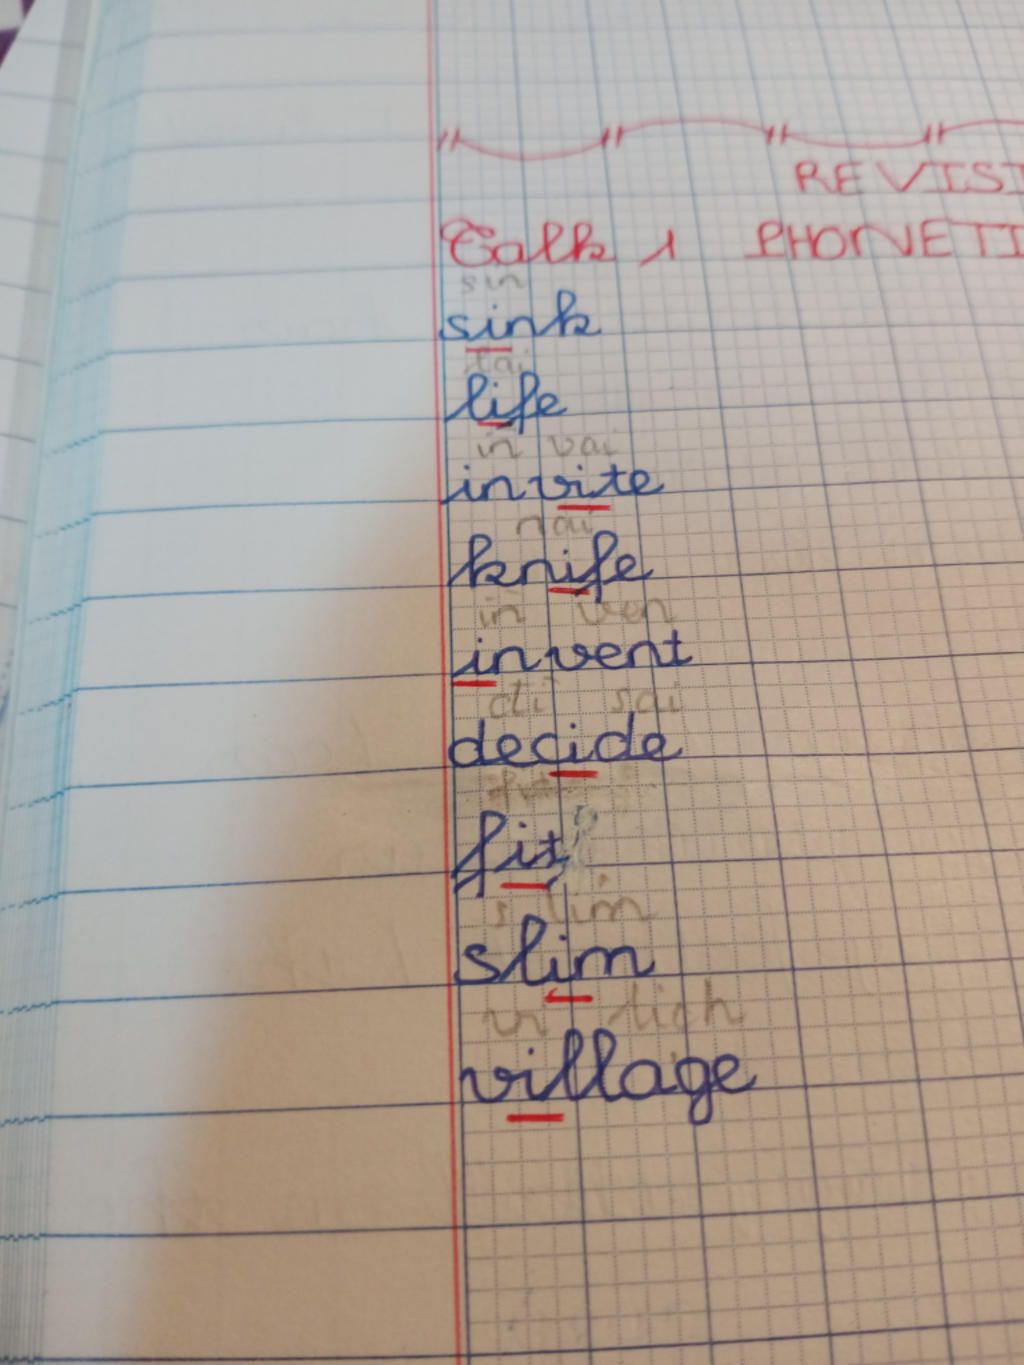 REVISI
Talk 1 PHONETI
sin
sink
lai
life
in vai
invite
nai
knife
in ven
invent
di sai
decide
fit
s lim
slim
vi lich
village